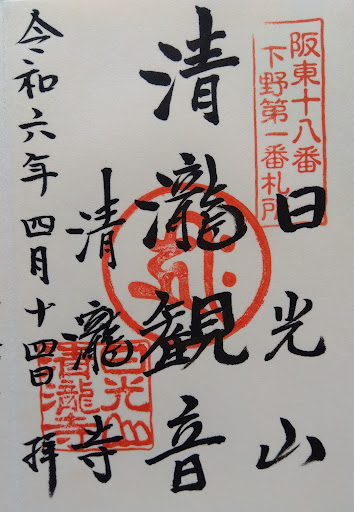 阪東十八番
下野第一番札所
日光山
清瀧観音
清瀧寺
令和六年四月十四日 拝
日光山
清瀧寺